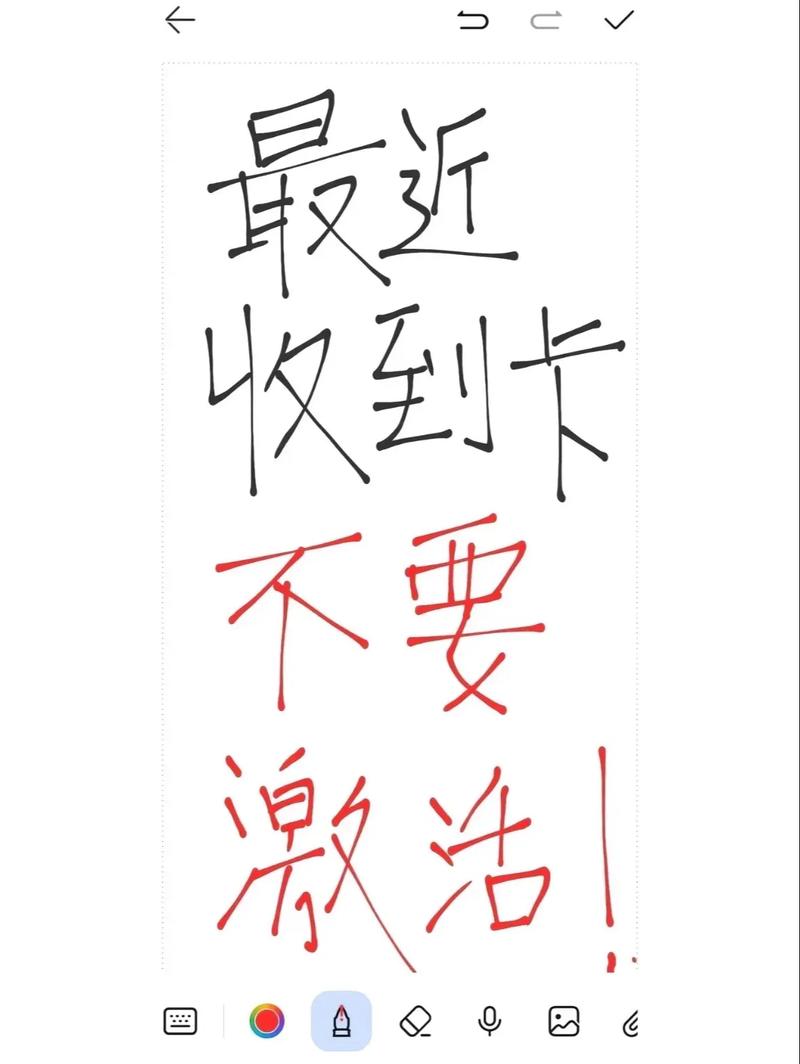 最近
收到卡
不要
激活!